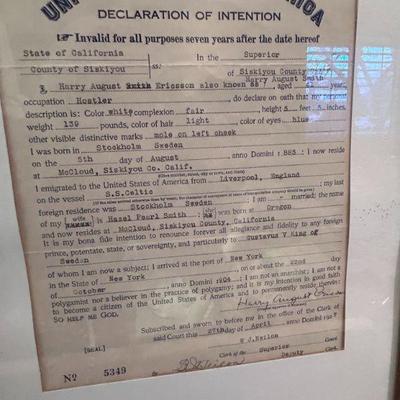 UNITED STATES OF AMERICA
DECLARATION OF INTENTION
☞ Invalid for all purposes seven years after the date hereof
State of California
In the Superior
County of Siskiyou ss:
of Siskiyou County
Harry August Smith
I, Harry August Smith Ericsson also known as, aged 41 years,
occupation Hostler, do declare on oath that my personal
description is: Color white complexion fair, height 5 feet 5 inches,
weight 139 pounds, color of hair light, color of eyes blue
other visible distinctive marks mole on left cheek
I was born in Stockholm Sweden
on the 5th day of August, anno Domini 1883; I now reside
at McCloud, Siskiyou Co. Calif.
I emigrated to the United States of America from Liverpool, England
on the vessel S.S.Celtic; my last
foreign residence was Stockholm Sweden; I am married; the name
of my wife is Hazel Pearl Smith; she was born at Oregon
and now resides at McCloud, Siskiyou County, California
It is my bona fide intention to renounce forever all allegiance and fidelity to any foreign
prince, potentate, state, or sovereignty, and particularly to Gustavus V King of
Sweden
of whom I am now a subject; I arrived at the port of New York
in the State of New York, on or about the 22nd day
of October, anno Domini; I am not an anarchist; I am not a
polygamist nor a believer in the practice of polygamy; and it is my intention in good faith
to become a citizen of the United States of America and to permanently reside therein:
SO HELP ME GOD.
Harry August
Subscribed and sworn to before me in the office of the Clerk of
said Court this 27th day of April anno Domini 192
[SEAL]
W J Neilon
Clerk of the Superior
No 5349
By Deputy Clerk